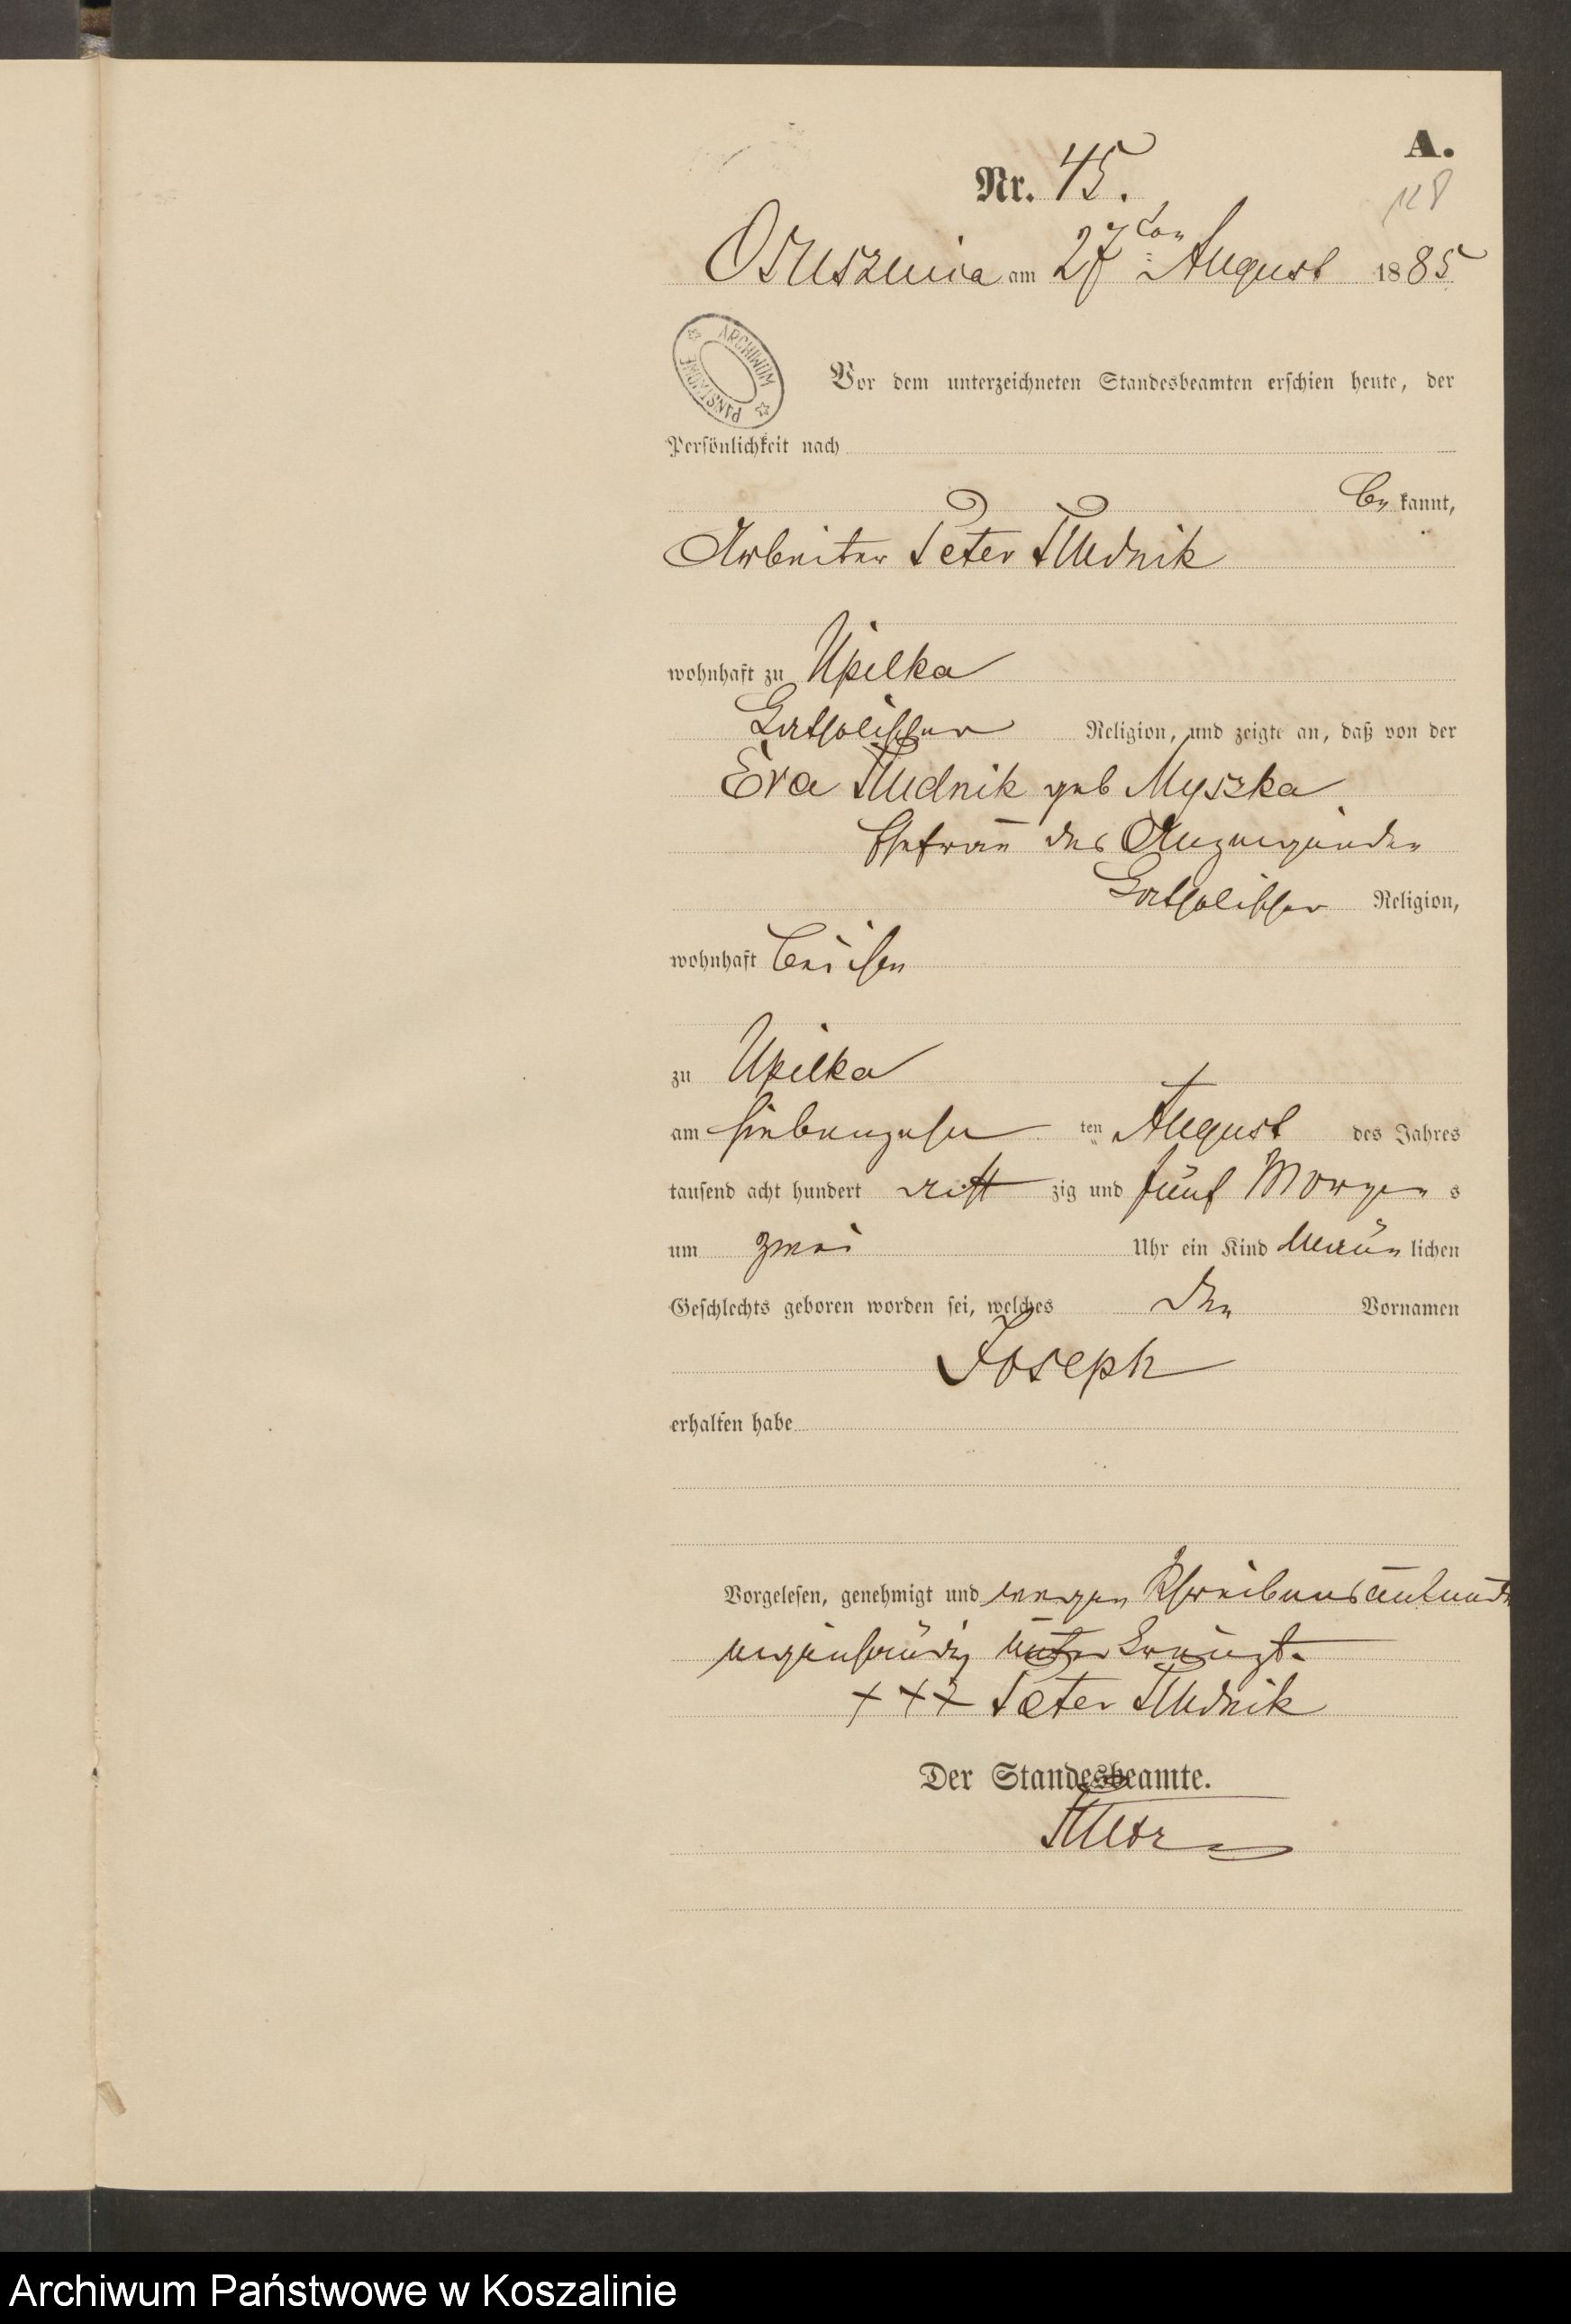 A.
Nr. 45.
118
Osusznica am 27ten August 1885
ARCHIWUM PAŃSTWOWE
Vor dem unterzeichneten Standesbeamten erschien heute, der
Persönlichkeit nach
be kannt,
Arbeiter Peter Rudnik
wohnhaft zu Upilka
katholischer Religion, und zeigte an, daß von der
Eva Rudnik geb Myszka
Ehefrau des Anzeigenden
katholischer Religion,
wohnhaft bei ihm
zu Upilka
am siebenzehn ten August des Jahres
tausend acht hundert acht zig und fünf Morgen s
um zwei Uhr ein Kind männ lichen
Geschlechts geboren worden sei, welches den Vornamen
Joseph
erhalten habe
Vorgelesen, genehmigt und wegen Schreibensunkunde
eigenhändig unterkreuzt.
+++ Peter Rudnik
Der Standesbeamte.
Archiwum Państwowe w Koszalinie